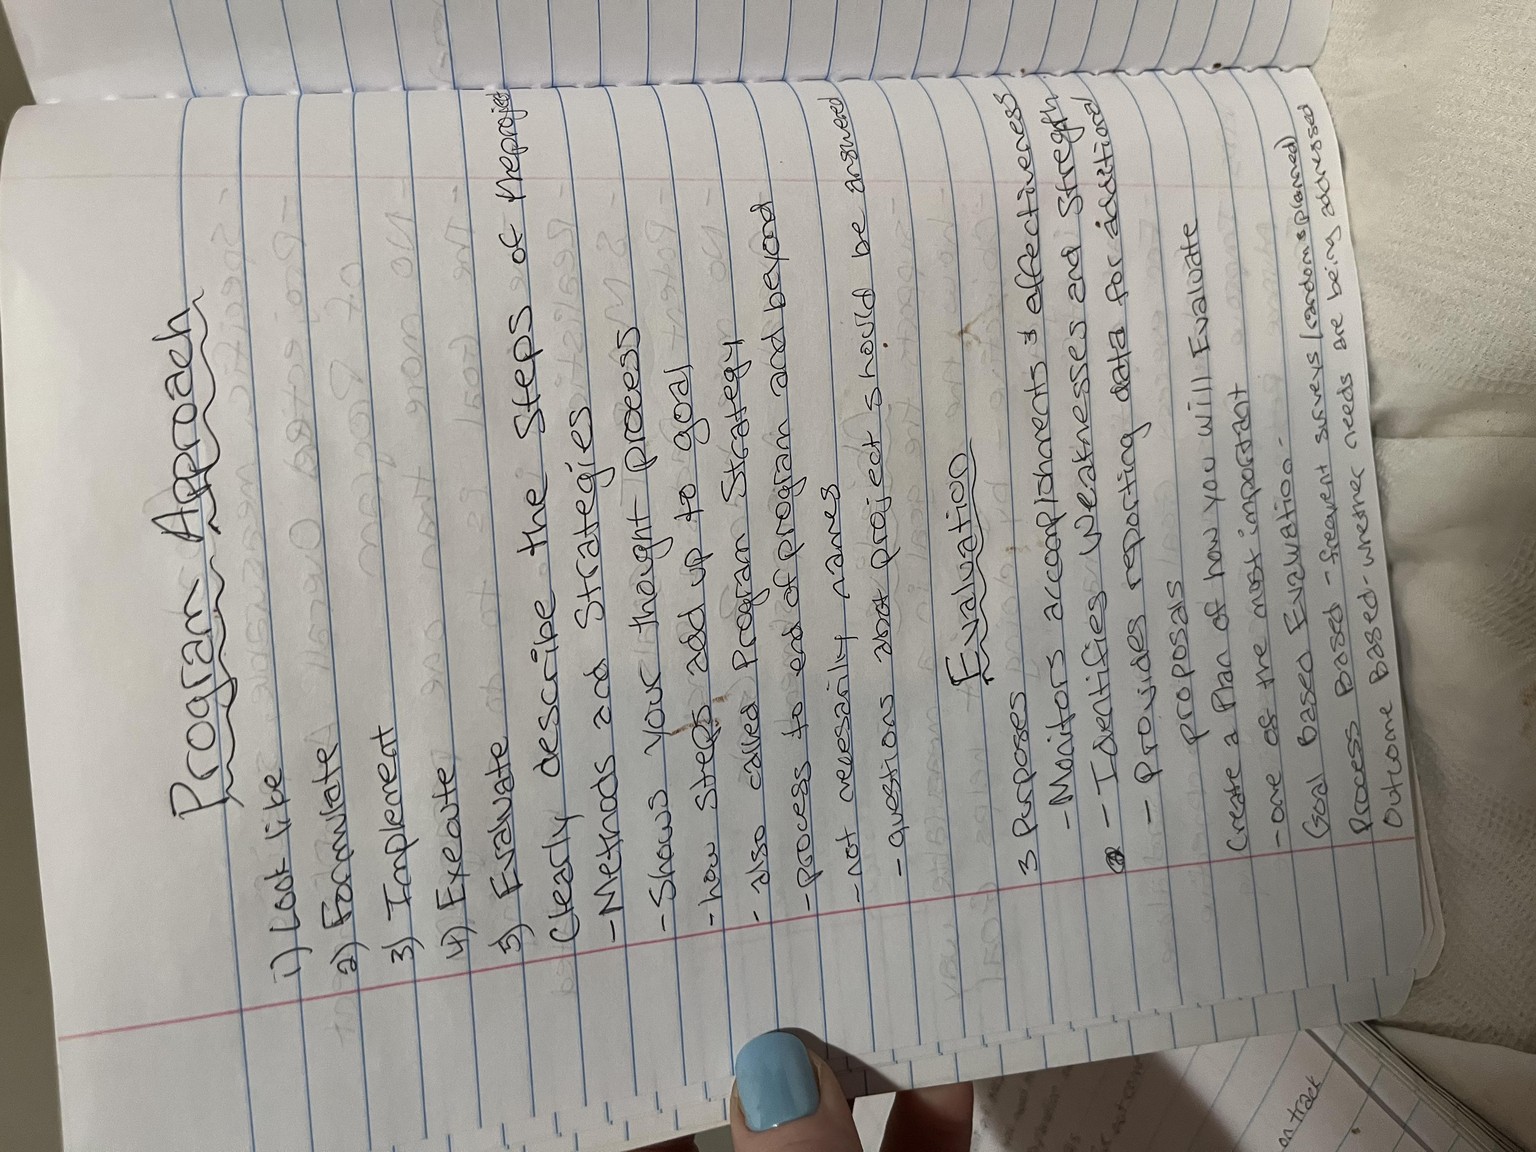 Program Approach
1) Look like
2) Formulate
3) Implement
4) Execute
5) Evaluate
Clearly describe the steps of the project
- Methods and Strategies
- Shows your thought process
- how steps add up to goal
- also called Program Strategy
- process to end of program and beyond
- not necessarily names
- questions abot project should be answered
Evaluation
3 Purposes
- Monitors accomplishments & effectiveness
- Identifies Weaknesses and Stregth
- Provides reporting data for additional
proposals
Create a Plan of how you will Evaluate
- one of the most important
Goal Based Evaluation -
Process Based - frequent surveys (random & planned)
Outcome Based - whether needs are being addressed
on track